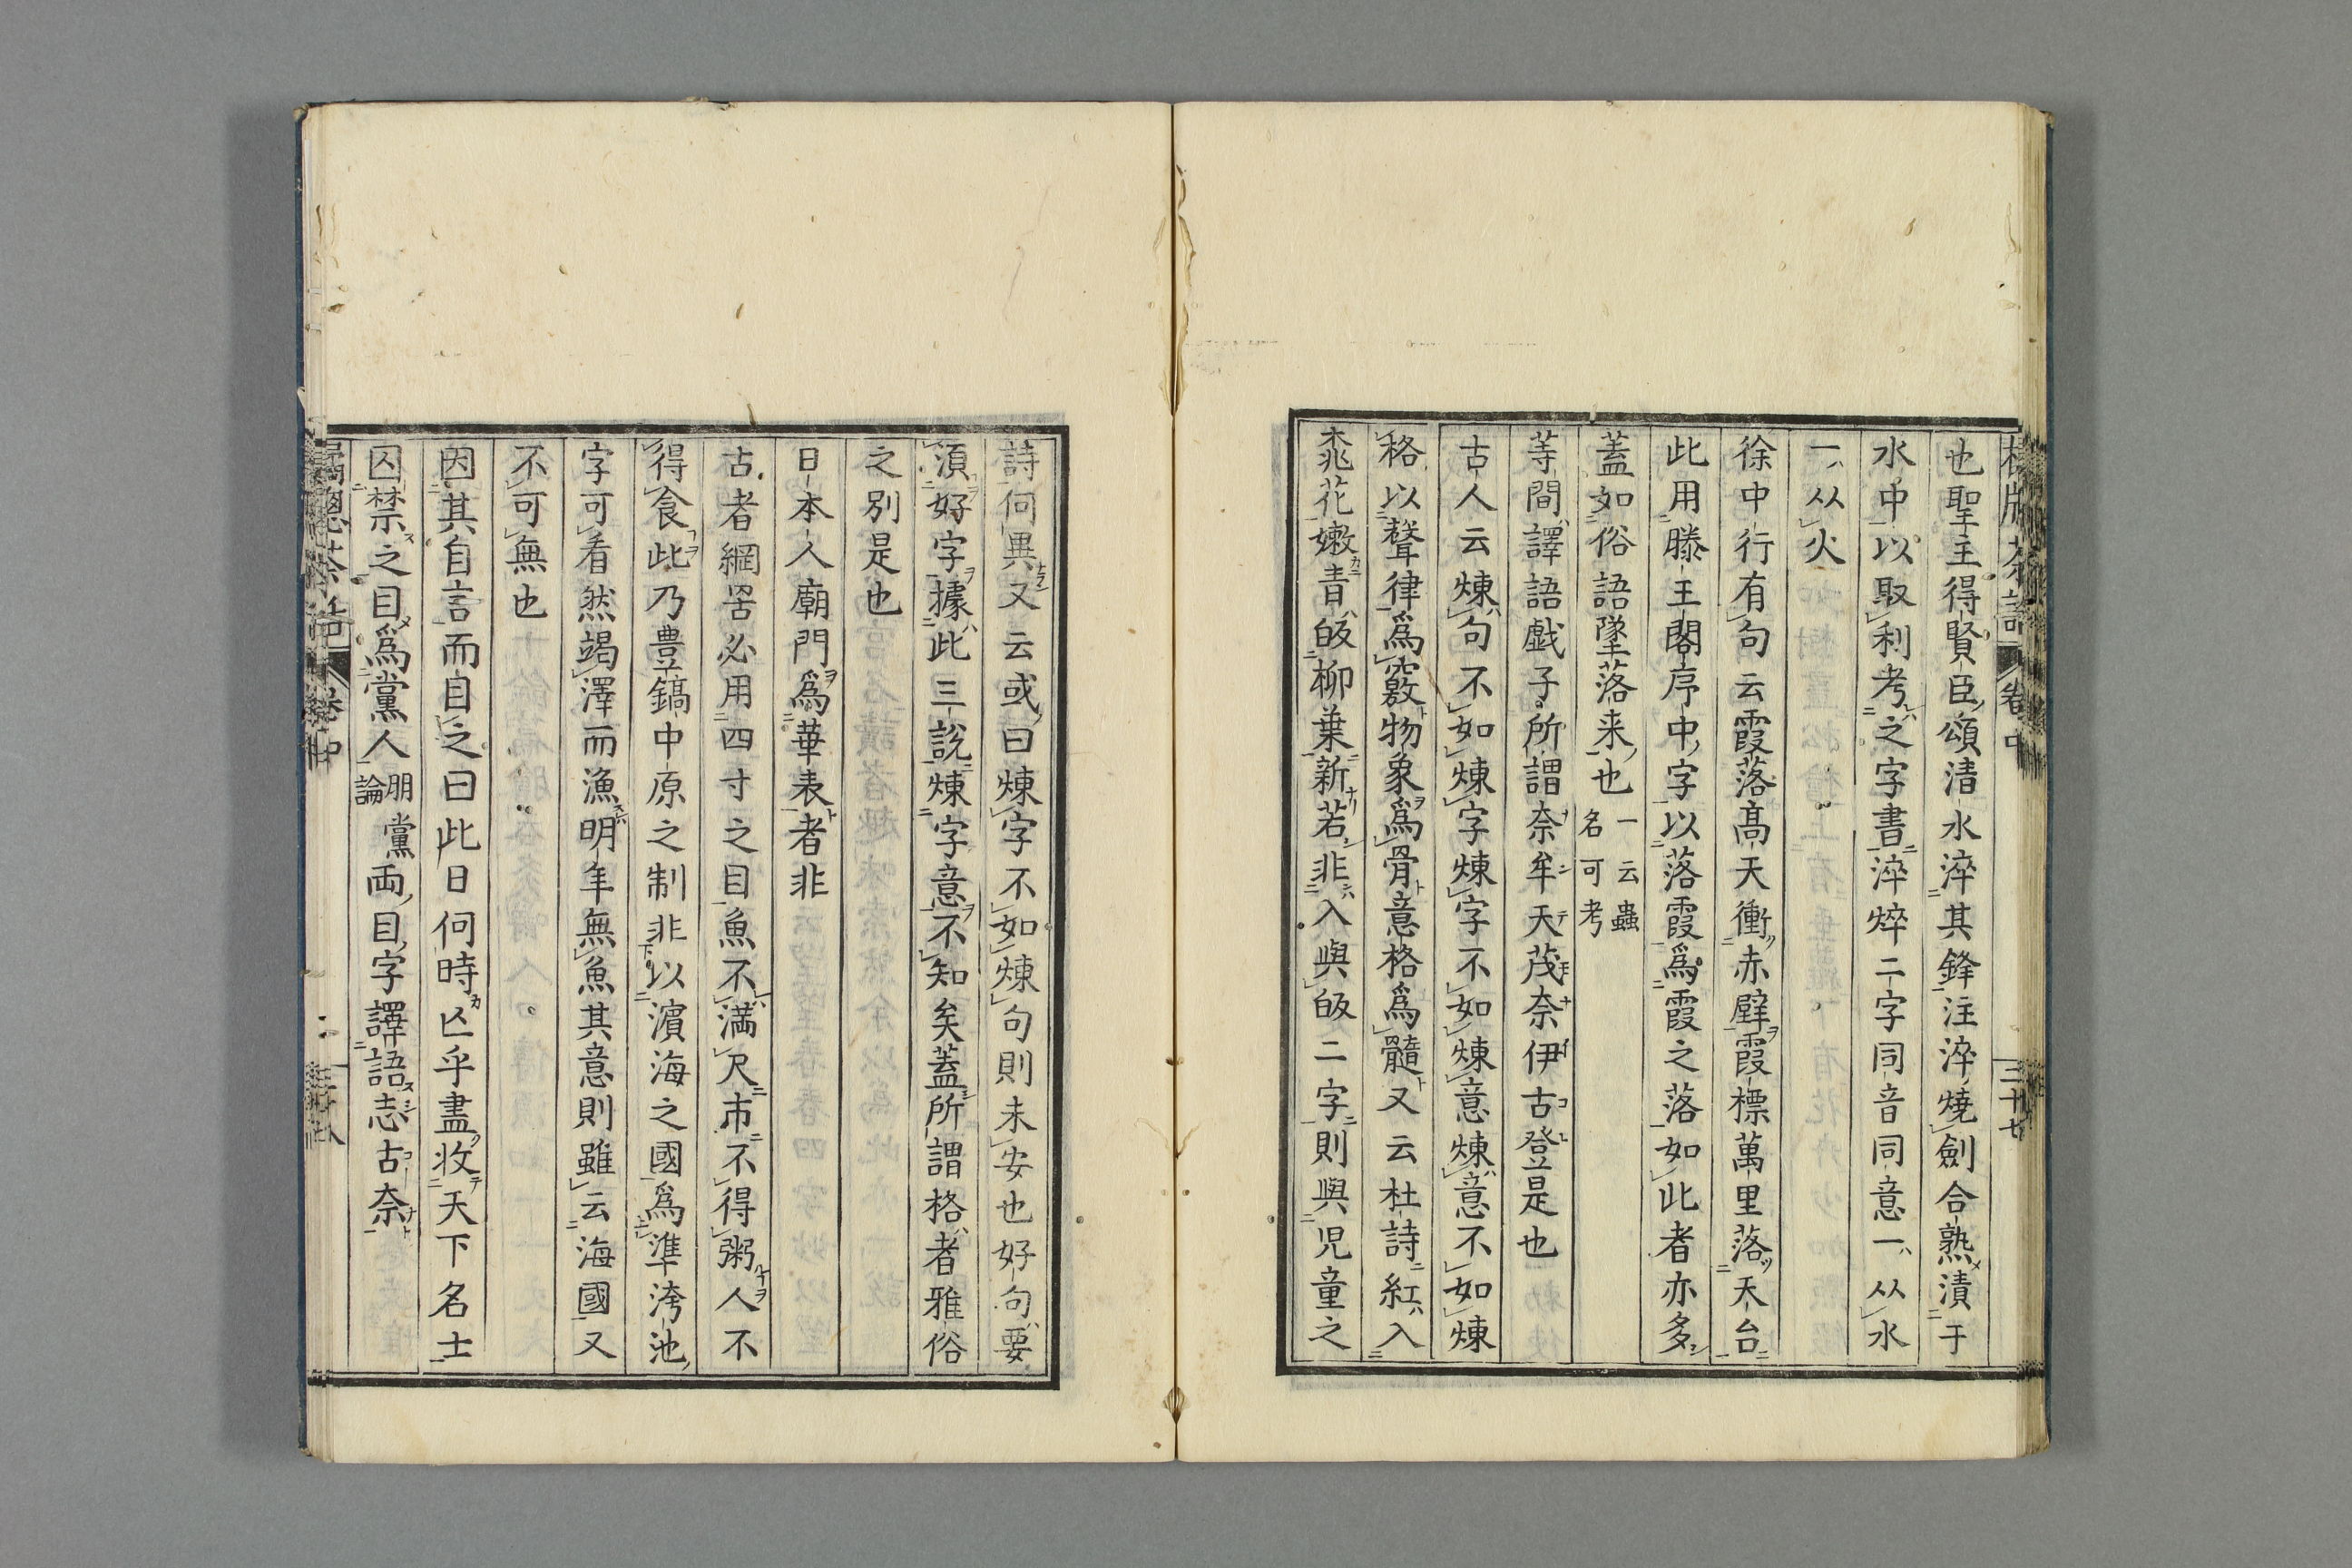 也聖主得賢臣頌清水淬其鋒注淬燒劍合熟漬于
水中以取利考之字書淬焠二字同音同意一从水
一从火
徐中行有句云霞落高天衝赤壁霞標萬里落天台
此用滕王閣序中字以落霞爲霞之落如此者亦多
蓋如俗語墜落来也一云蟲名可考
等間譯語戯子所謂奈牟天茂奈伊古登是也
古人云煉句不如煉字煉字不如煉意煉意不如煉
格以聲律爲竅物象爲骨意格爲髓又云杜詩紅入
桃花嫩青皈柳葉新若非入與皈二字則與児童之
詩何異又云或曰煉字不如煉句則未安也好句要
須好字據此三說煉字意不知矣蓋所謂格者雅俗
之別是也
日本人廟門爲華表者非
古者網罟必用四寸之目魚不満尺市不得粥人不
得食此乃豊鎬中原之制非以濱海之國爲準洿池
字可看然竭澤而漁明年無魚其意則雖云海國又
不可無也
因其自言而目之曰此日何時亾乎盡收天下名士
囚禁之目爲黨人朋黨論両目字譯語志古奈